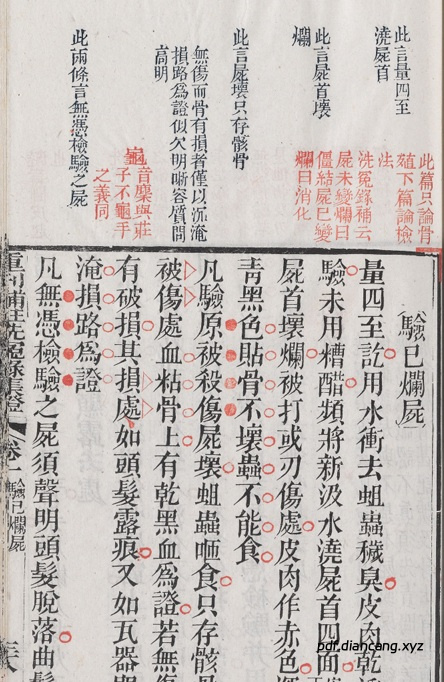 此言量四至
澆屍首
此言屍首壞
爛
此言屍壞只存骸骨
無傷而骨有損者僅以沉淹
損路爲證似欠明晰容質問
高明
此兩條言無憑檢驗之屍
此篇只論骨
殖下篇論檢
法
洗冤錄補云
屍未變爛曰
僵結屍已變
爛曰消化
音麇與莊
子不龜手
之義同
驗已爛屍
量四至訖用水衝去蛆蟲穢臭皮肉乾淨
驗未用糟醋頻將新汲水澆屍首四面
屍首壞爛被打或刃傷處皮肉作赤色
青黑色貼骨不壞蟲不能食
凡驗原被殺傷屍壞蛆蟲咂食只存骸骨
被傷處血粘骨上有乾黑血爲證若無傷
有破損其損處如頭髮露痕又如瓦器
淹損路爲證
凡無憑檢驗之屍須聲明頭髮脫落曲鬢
重刊補註洗冤錄集證
卷一
驗已爛屍
三六
pdf.diancang.xyz